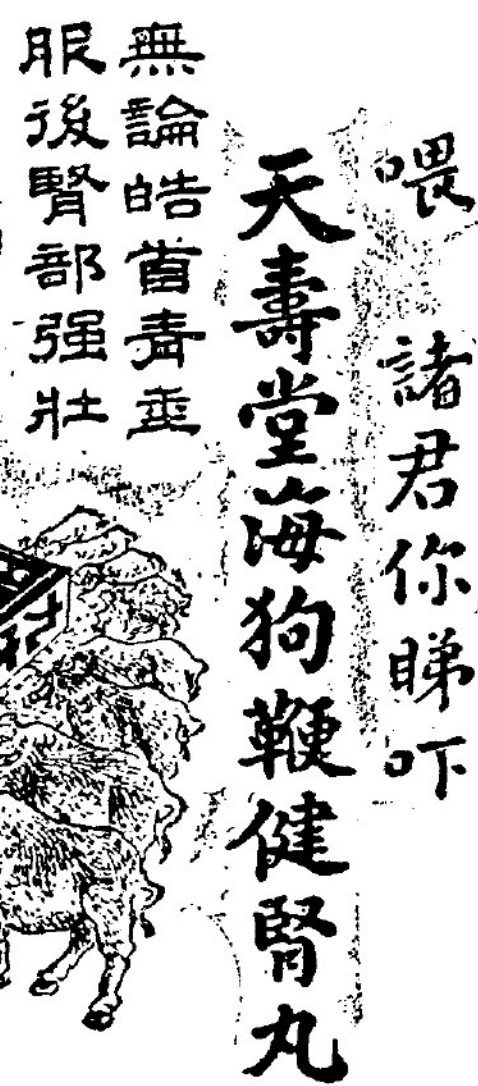 喂 諸君你睇吓
天壽堂海狗鞭健腎丸
無論皓首青年
服後腎部强壯